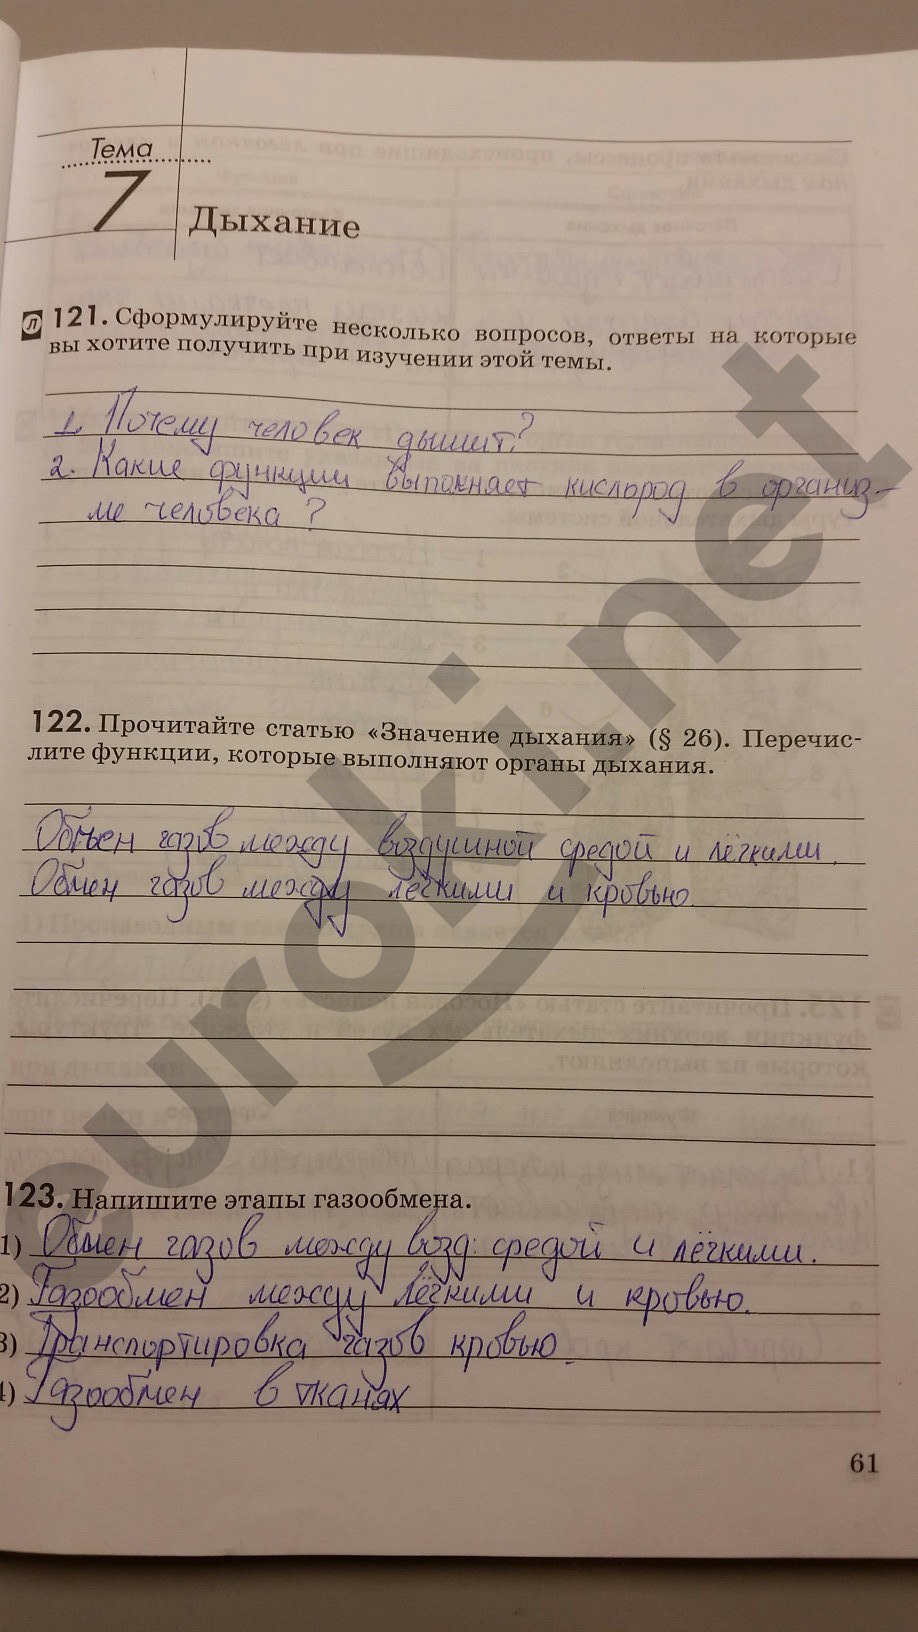 Тема
7
Дыхание
Л 121. Сформулируйте несколько вопросов, ответы на которые
вы хотите получить при изучении этой темы.
1. Почему человек дышит?
2. Какие функции выполняет кислород в организ-
ме человека?
122. Прочитайте статью «Значение дыхания» (§ 26). Перечис-
лите функции, которые выполняют органы дыхания.
Обмен газов между воздушной средой и лёгкими.
Обмен газов между лёгкими и кровью.
123. Напишите этапы газообмена.
1) Обмен газов между возд. средой и лёгкими.
2) Газообмен между лёгкими и кровью.
3) Транспортировка газов кровью.
4) Газообмен в тканях
61
euroki.net